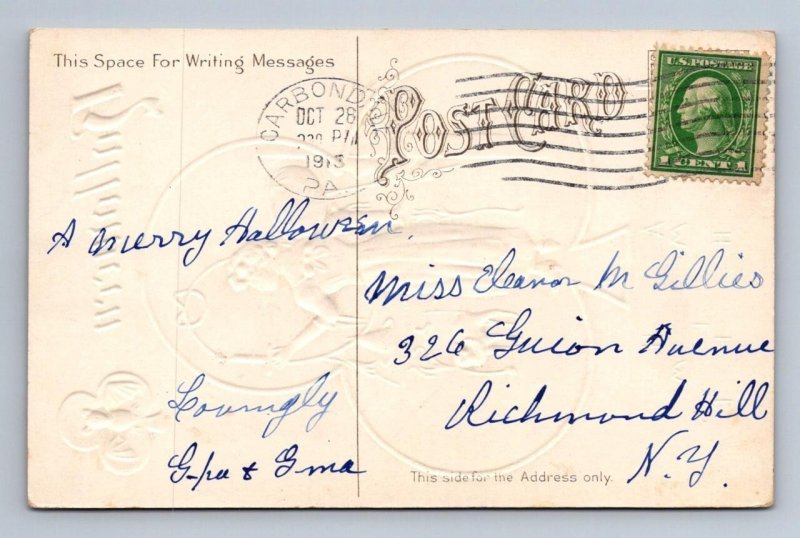 This Space For Writing Messages
POST CARD
U.S. POSTAGE
1 CENT 1
CARBONDALE
OCT 26
230 PM
1913
PA.
A Merry Halloween,
Lovingly
G-pa & G-ma
Miss Eleanor McGillies
326 Guion Avenue
Richmond Hill
N.Y.
This side for the Address only.
Halloween